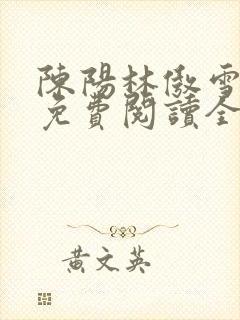 陳陽林傲雪
免費閱讀全
黃文英